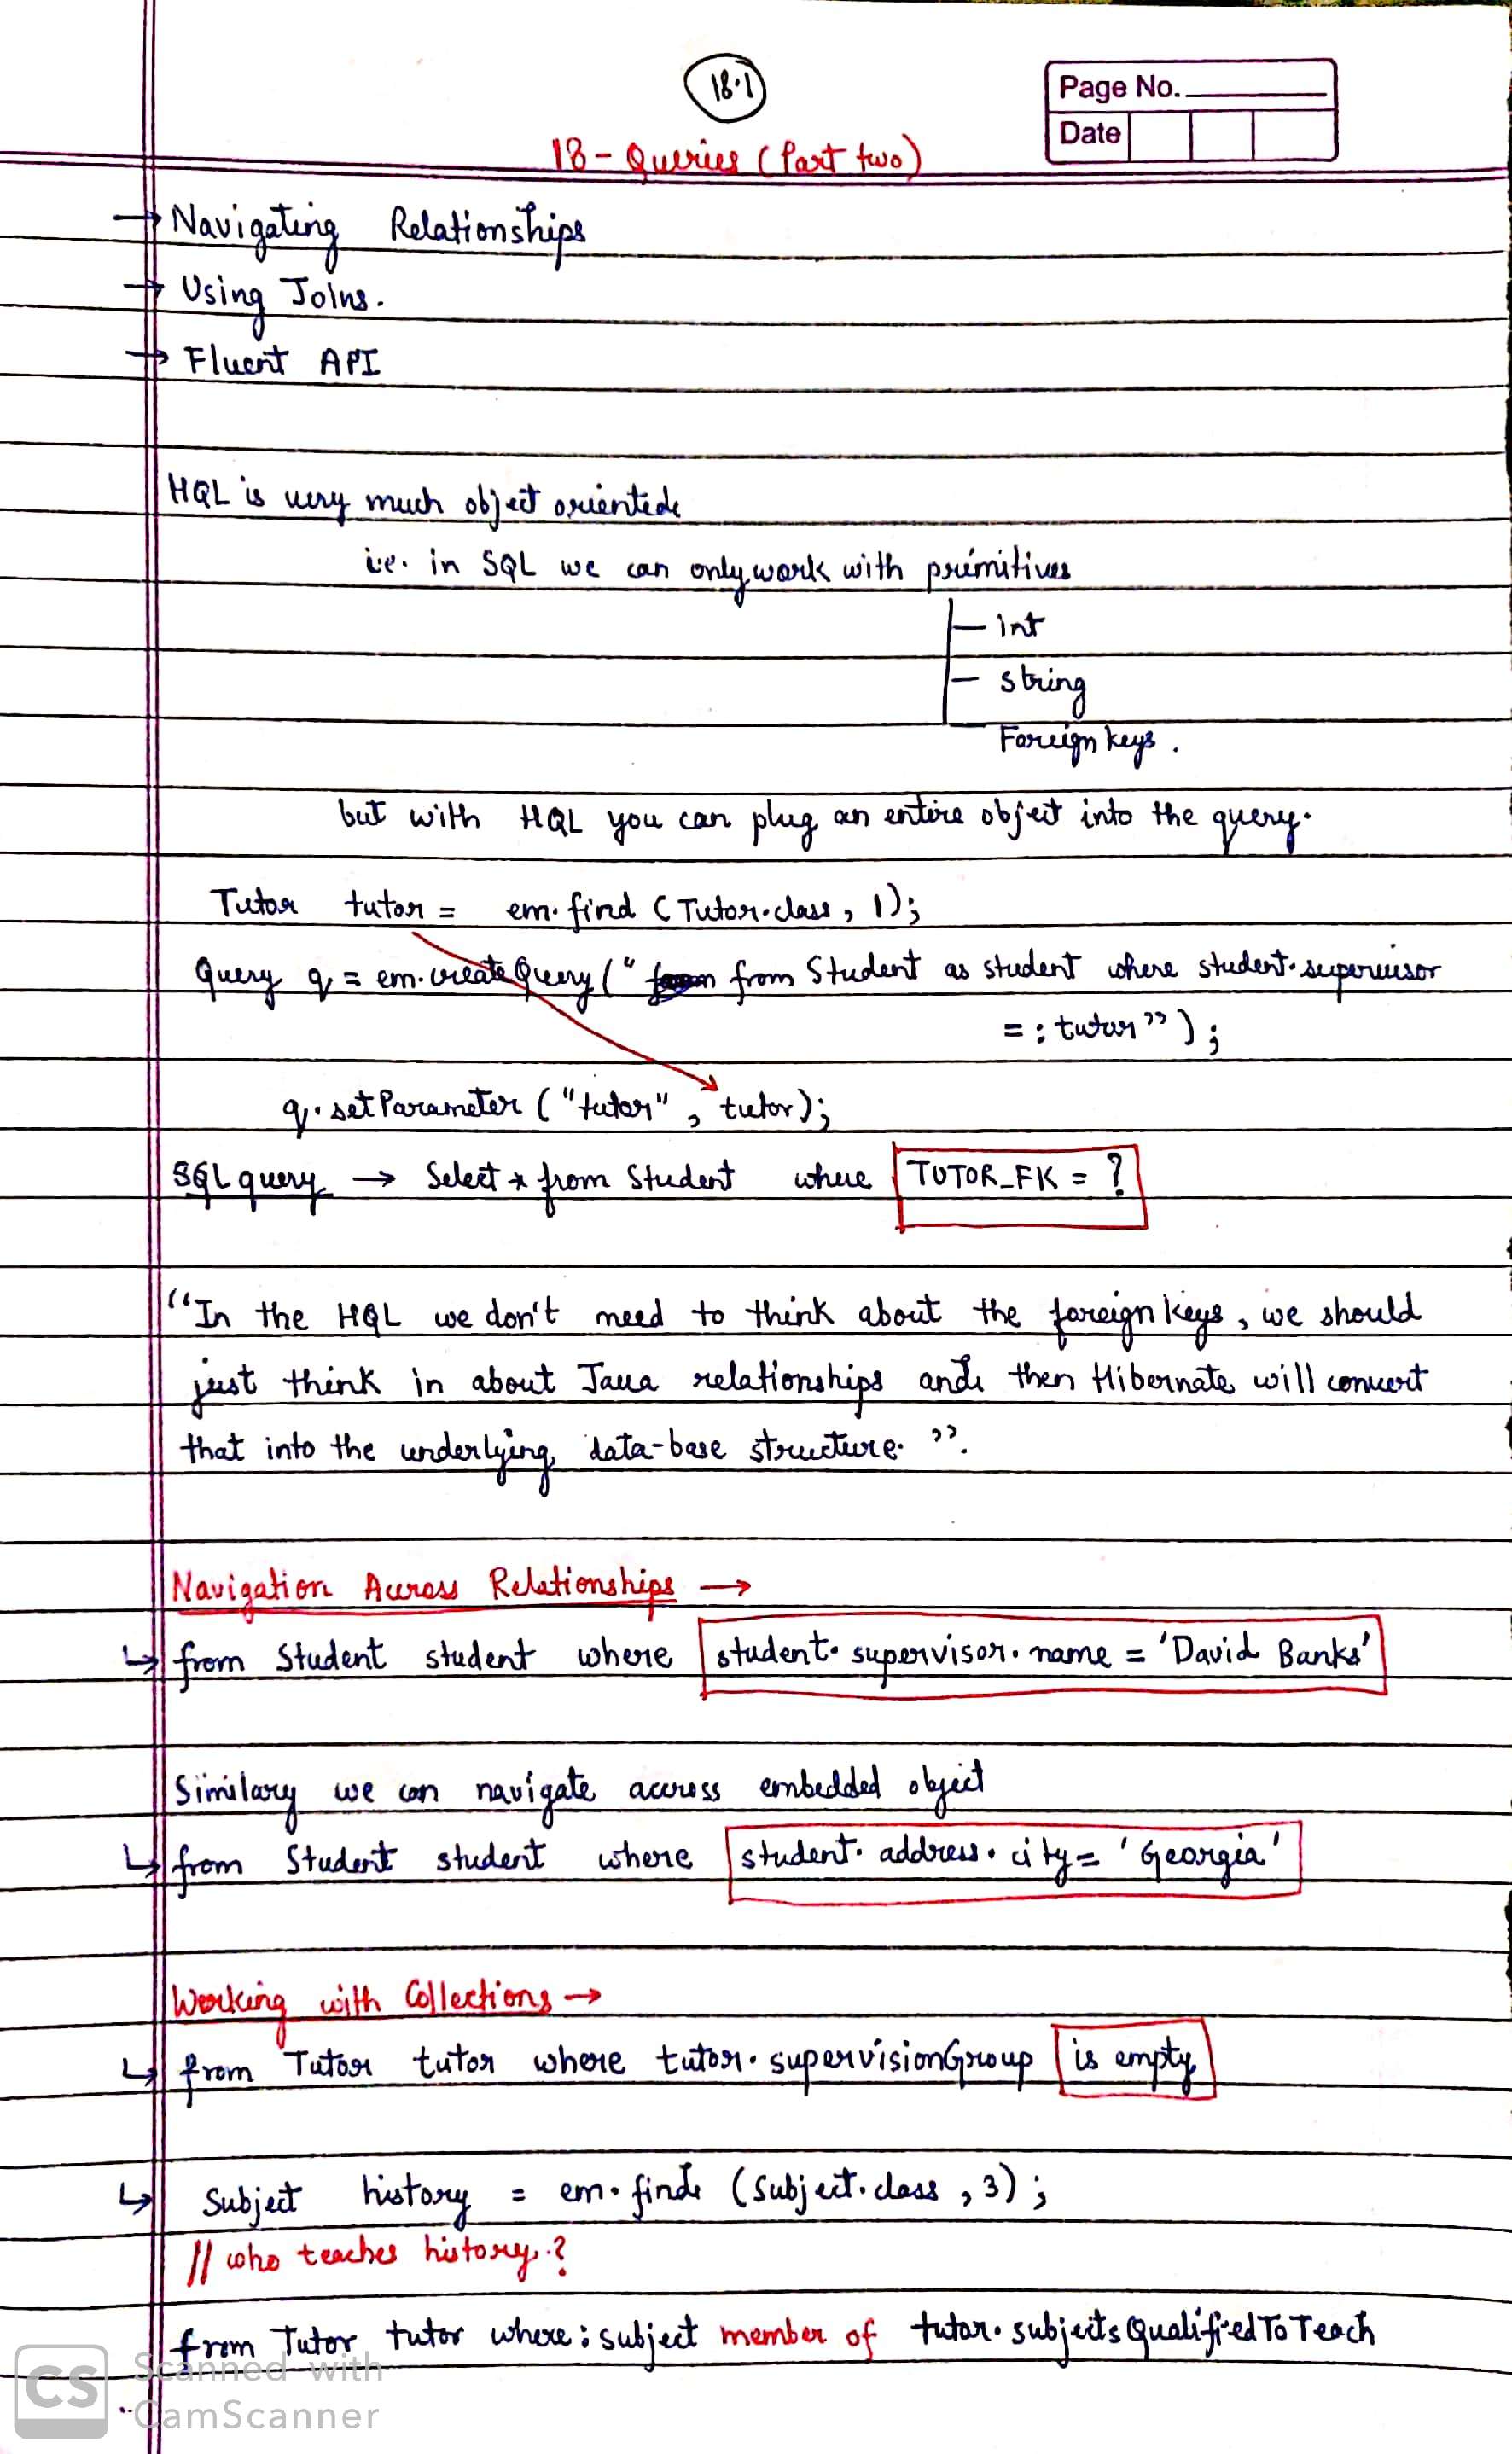 18.1
Page No.
Date
18 - Queries (Part two)
→ Navigating Relationships
→ Using Joins.
→ Fluent API
HQL is very much object oriented
i.e. in SQL we can only work with primitives
- int
- string
- Foreign keys.
but with HQL you can plug an entire object into the query.
Tutor tutor = em.find (Tutor.class, 1);
Query q = em.createQuery (" from Student as student where student.supervisor
= : tutor");
q.setParameter ("tutor", tutor);
SQL query → Select * from Student where TUTOR_FK = ?
"In the HQL we don't need to think about the foreign keys, we should
just think in about Java relationships and then Hibernate will convert
that into the underlying data-base structure."
Navigation Across Relationships →
↳ from Student student where student.supervisor.name = 'David Banks'
Similary we can navigate accross embedded object
↳ from Student student where student.address.city = 'Georgia'
Working with Collections →
↳ from Tutor tutor where tutor.supervisionGroup is empty
↳ Subject history = em.find (Subject.class, 3);
// who teaches history ?
from Tutor tutor where : subject member of tutor.subjectsQualifiedToTeach
CS Scanned with
CamScanner